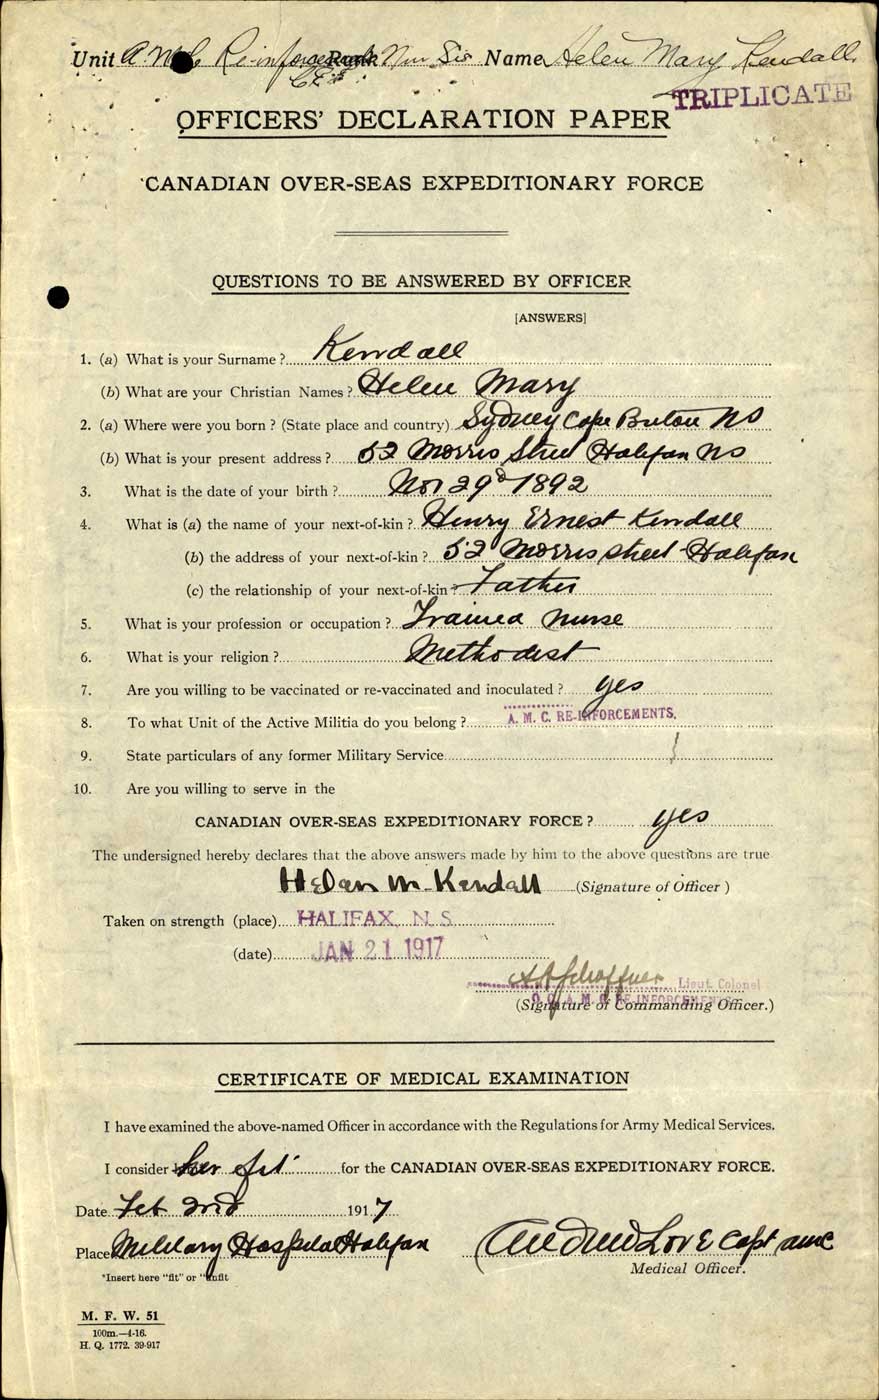 Unit A.M.C. Reinforce Rank Nur Sis Name Helen Mary Kendall
CEF
TRIPLICATE
OFFICERS' DECLARATION PAPER
CANADIAN OVER-SEAS EXPEDITIONARY FORCE
QUESTIONS TO BE ANSWERED BY OFFICER
[ANSWERS]
1. (a) What is your Surname? Kendall
(b) What are your Christian Names? Helen Mary
2. (a) Where were you born? (State place and country) Sydney Cape Breton NS
(b) What is your present address? 52 Morris Street Halifax NS
3. What is the date of your birth? Nov 29d 1892
4. What is (a) the name of your next-of-kin? Henry Ernest Kendall
(b) the address of your next-of-kin? 52 Morris Street Halifax
(c) the relationship of your next-of-kin? Father
5. What is your profession or occupation? Trained Nurse
6. What is your religion? Methodist
7. Are you willing to be vaccinated or re-vaccinated and inoculated? yes
8. To what Unit of the Active Militia do you belong? A. M. C. RE-INFORCEMENTS.
9. State particulars of any former Military Service
10. Are you willing to serve in the
CANADIAN OVER-SEAS EXPEDITIONARY FORCE? yes
The undersigned hereby declares that the above answers made by him to the above questions are true
Helen M. Kendall (Signature of Officer)
Taken on strength (place) HALIFAX, N. S.
(date) JAN 21 1917
Lieut Colonel
O. C. A. M. C. RE-INFORCEMENTS
(Signature of Commanding Officer.)
CERTIFICATE OF MEDICAL EXAMINATION
I have examined the above-named Officer in accordance with the Regulations for Army Medical Services.
I consider her fit for the CANADIAN OVER-SEAS EXPEDITIONARY FORCE.
Date Feb 2nd 1917
Place Military Hospital Halifax Andrew Love Capt amc
Medical Officer.
*Insert here "fit" or "unfit
M. F. W. 51
100m.—4-16.
H. Q. 1772. 39-917